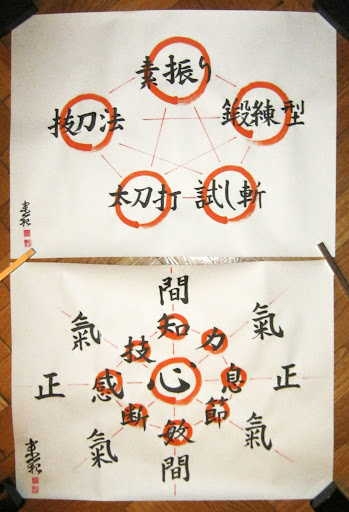 素振り
抜刀法
鍛練型
太刀打
試し斬
間
氣 知 氣
技 力
正 感 心 息 正
断 節
氣 敏 氣
間